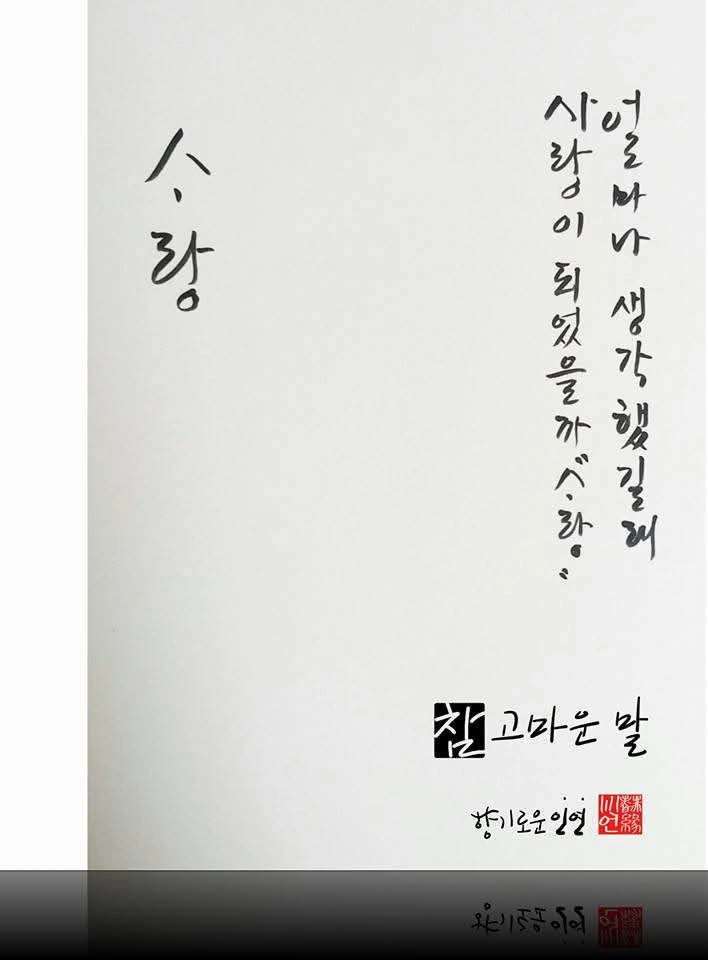 얼마나 생각했길래
사랑이 되었을까 “ᄉᆞ랑”
ᄉᆞ랑
참 고마운 말
향기로운 인연